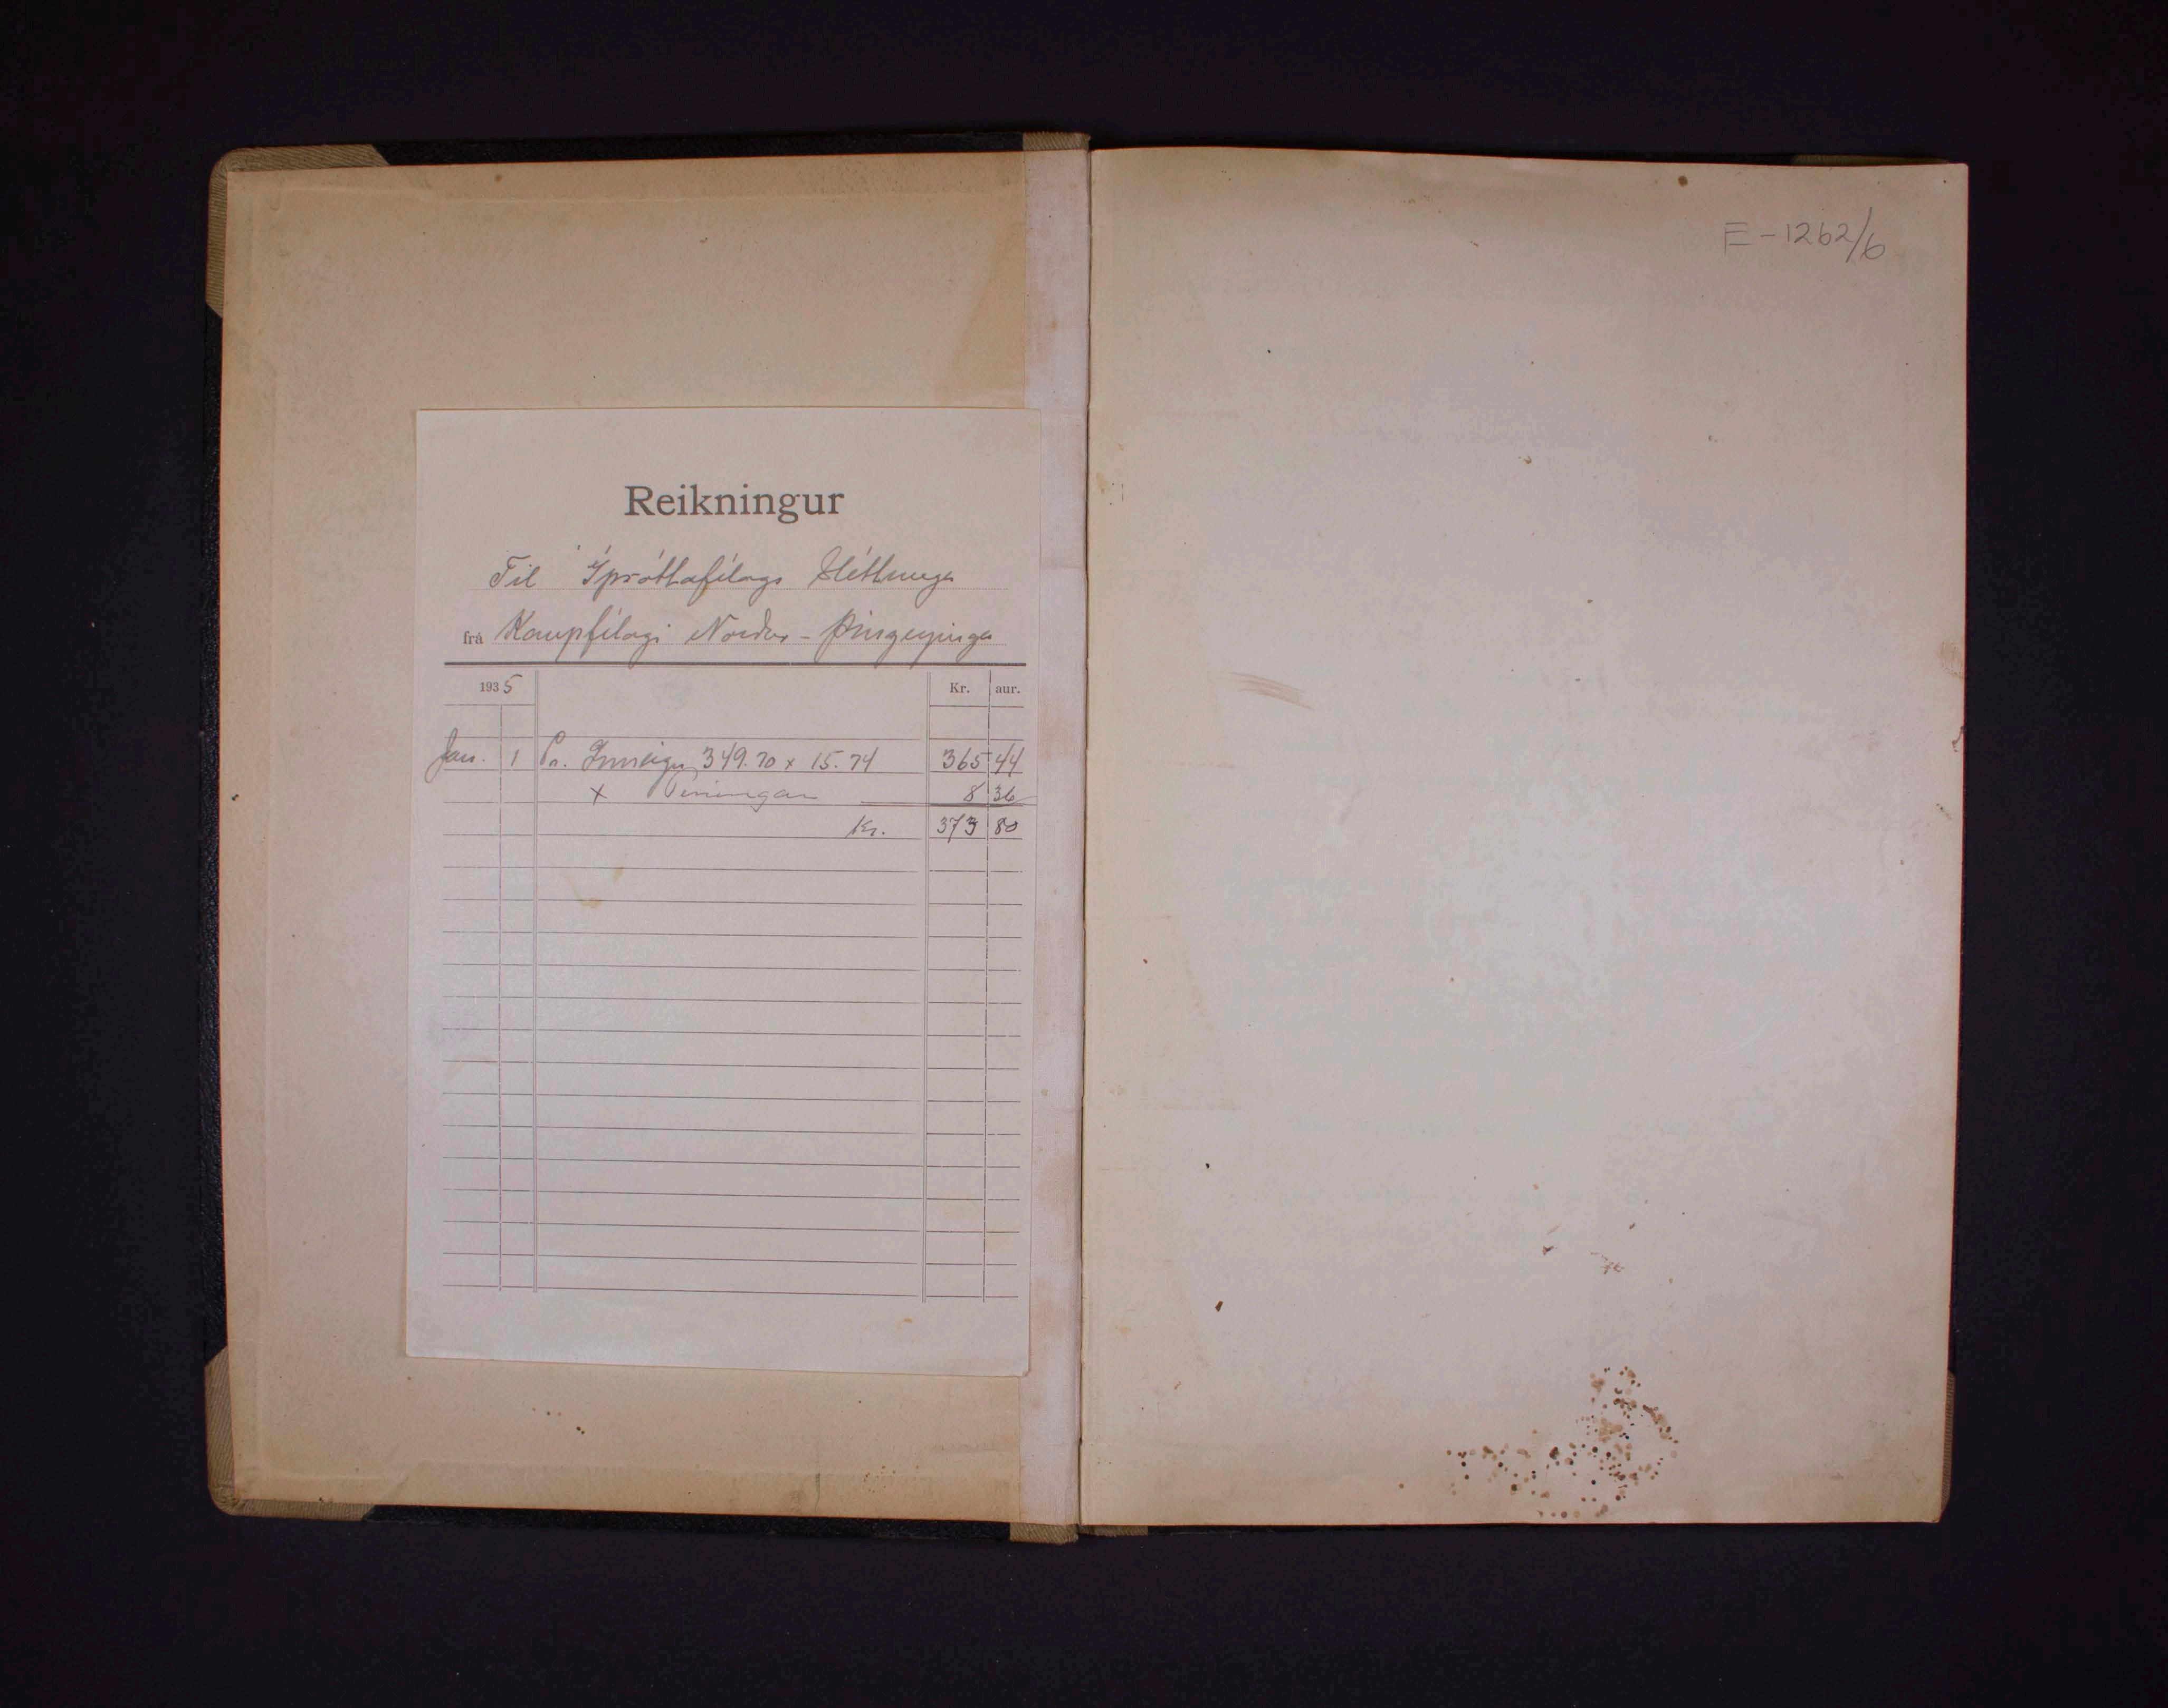 Reikningur
Til Íþróttafélags Sléttunga
frá Kaupfélagi Norður-Þingeyinga
1935 Kr. aur.
Jan. 1 Pr. Inneign 349.70 x 15.74 365 44
x Peningar 8 36
Kr. 373 80
E-1262/6